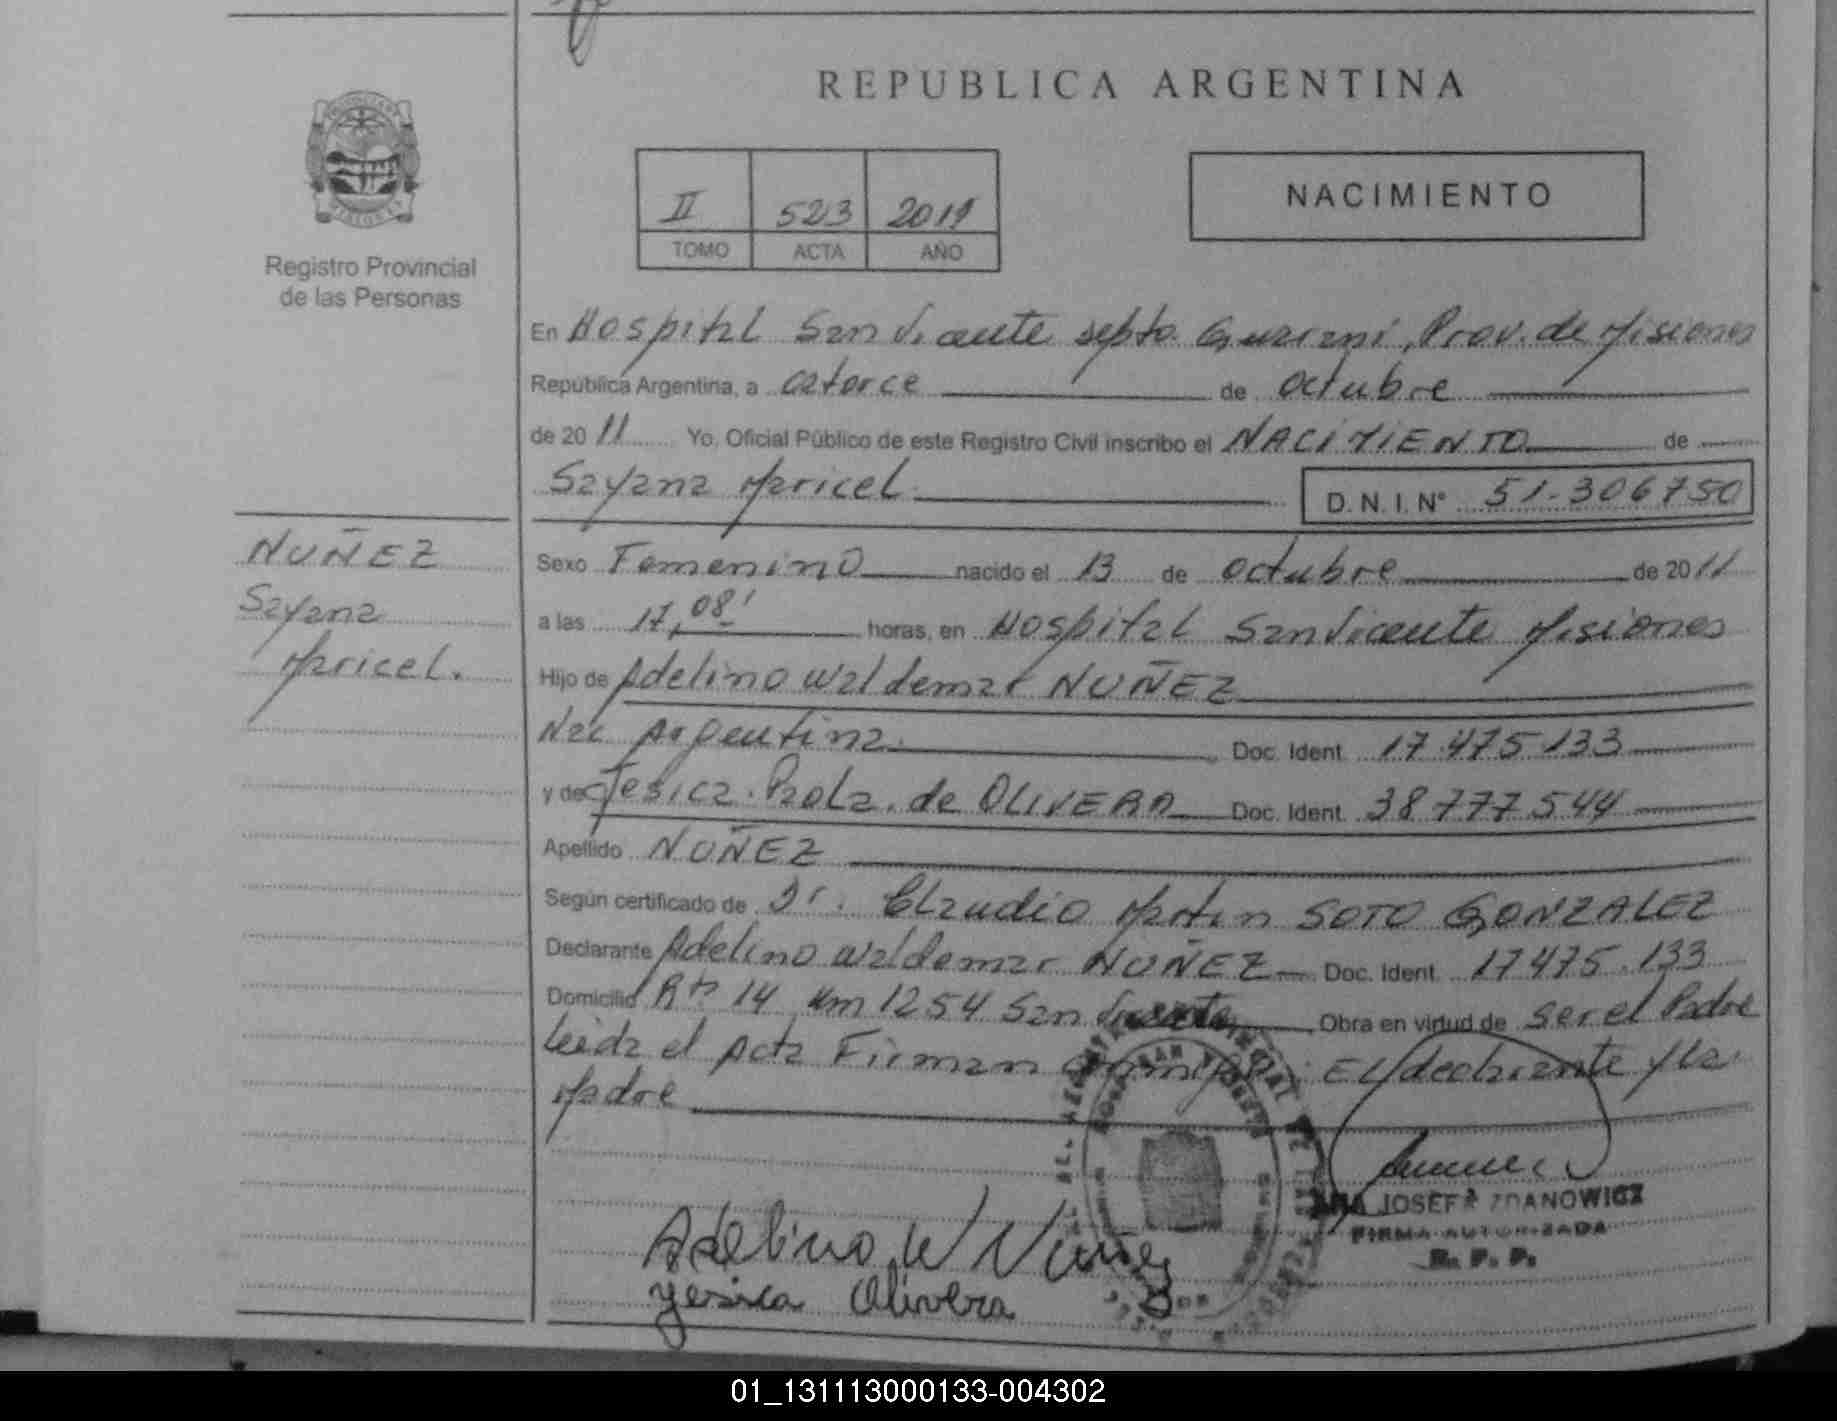 REPUBLICA ARGENTINA
II 523 2011
TOMO ACTA AÑO
NACIMIENTO
Registro Provincial
de las Personas
En Hospital San Vicente Depto. Guarani, Prov. de Misiones
República Argentina, a catorce de octubre
de 2011 Yo, Oficial Público de este Registro Civil inscribo el NACIMIENTO de
Sayana Maricel D.N.I.N° 51.306750
NUÑEZ
Sayana
Maricel.
Sexo Femenino nacido el 13 de octubre de 2011
a las 17,08' horas, en Hospital San Vicente Misiones
Hijo de Adelino Waldemar NUÑEZ
Nac Argentina. Doc. Ident. 17.475.133
y de Jesica. Paola. de OLIVERA Doc. Ident. 38777544
Apellido NUÑEZ
Según certificado de Dr. Claudio Martin SOTO GONZALEZ
Declarante Adelino Waldemar NUÑEZ Doc. Ident. 17475.133
Domicilio Rta 14 Km 1254 San Vicente Obra en virtud de ser el Padre
Leida el Acta Firman conmigo: El declarante y la
Madre
ANA JOSEFA ZDANOWICZ
FIRMA AUTORIZADA
R. P. P.
Adelino W Nuñez
Yesica Olivera
01_131113000133-004302